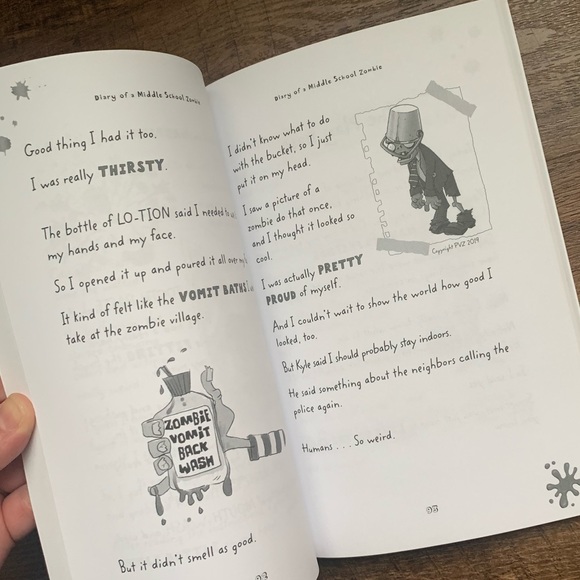 Diary of a Middle School Zombie
Good thing I had it too.
I was really THIRSTY.
The bottle of LO-TION said I needed to
my hands and my face.
So I opened it up and poured it all over my
It kind of felt like the VOMIT BATHS
take at the zombie village.
ZOMBIE
VOMIT
BACK
WASH
But it didn't smell as good.
Diary of a Middle School Zombie
I didn't know what to do
with the bucket, so I just
put it on my head.
I saw a picture of a
zombie do that once,
and I thought it looked so
cool.
Copyright PVZ 2019
I was actually PRETTY
PROUD of myself.
And I couldn't wait to show the world how good I
looked, too.
But Kyle said I should probably stay indoors.
He said something about the neighbors calling the
police again.
Humans . . . So weird.